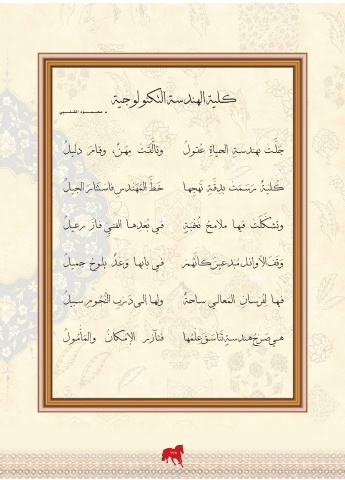 كلية الهندسة التكنولوجية
جَلَّتْ بهندسةِ الحياةِ عقولُ وتألقتْ مِهَنٌ، وقامَ دليلُ
كليةٌ رسمتْ بدقةِ نهجِها خطَّ المهندسِ فاستنارَ الجيلُ
وتشكلتْ فيها ملامحُ نُخبةٍ في بُعدِها الفني فازَ رعيلُ
وقفَ الأوائلُ مُبدعينَ كأنهم في بابها وعدٌ يلوحُ جميلُ
فيها لفرسانِ المعالي ساحةٌ ولها إلى دربِ النجومِ سبيلُ
هي صرحُ هندسةٍ تناسقَ علمُها فتآزر الإمكانُ والمأمولُ